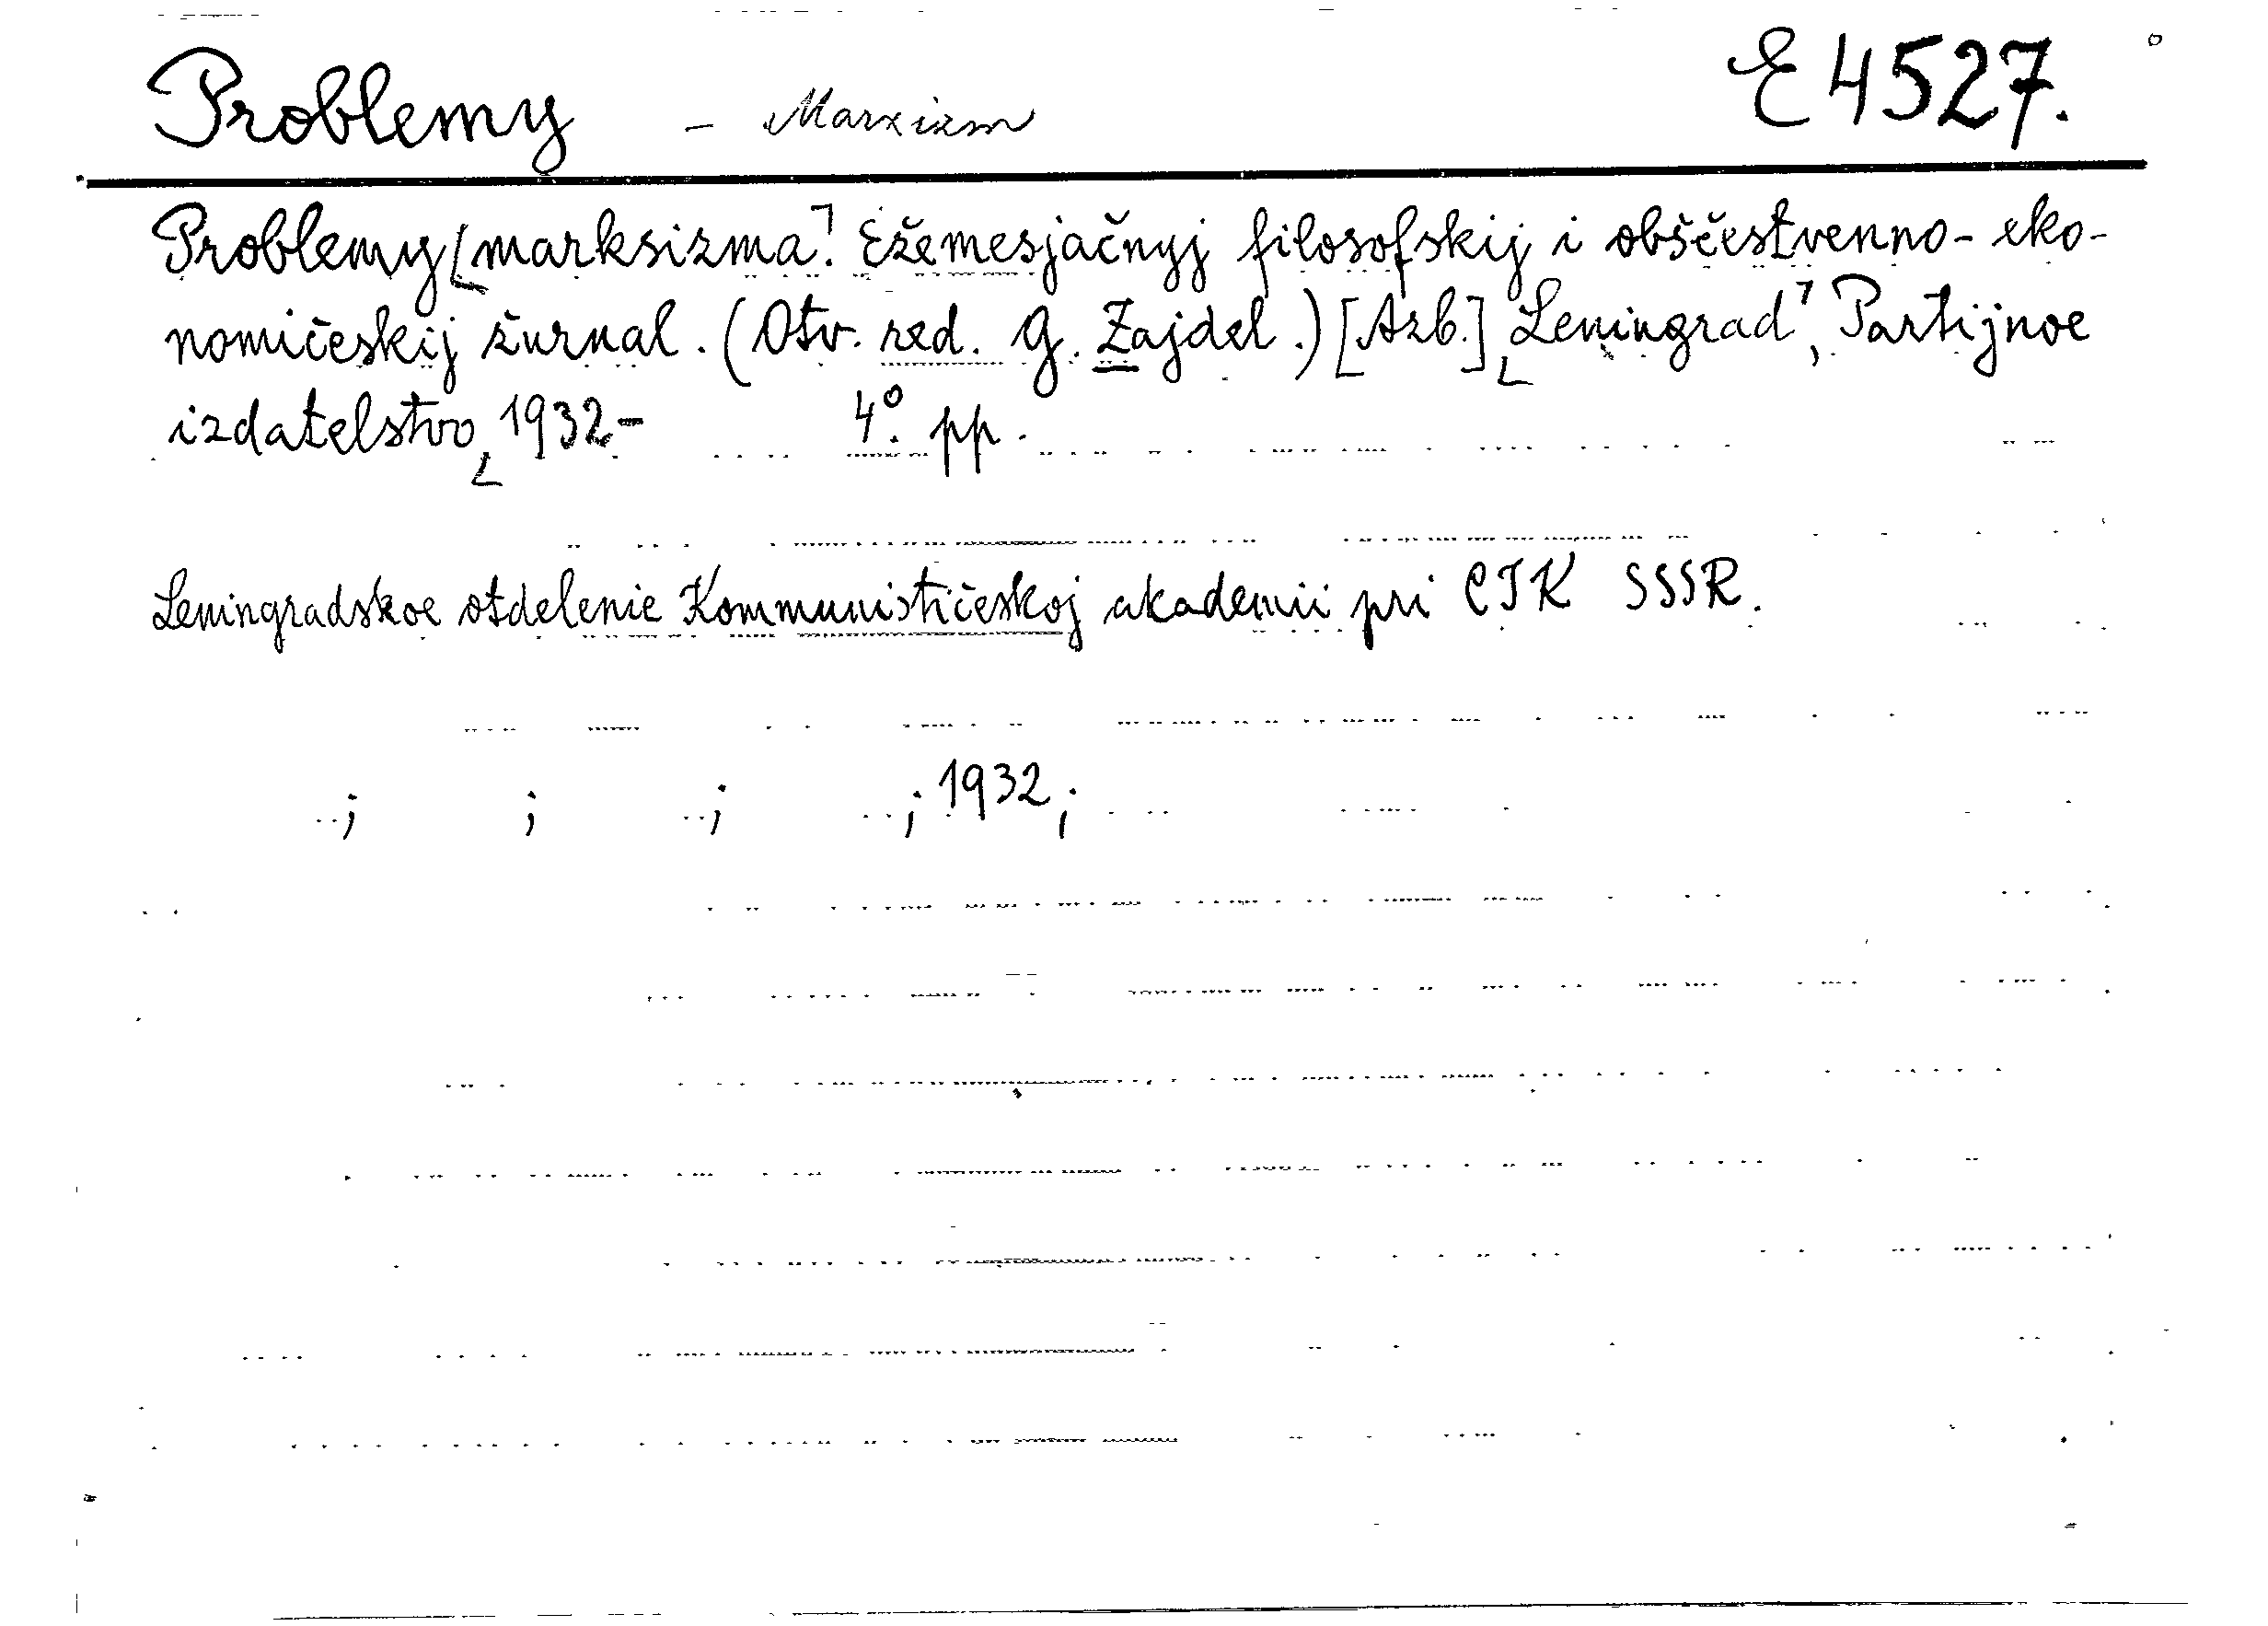 Problemy – Marxizm E 4527.
Problemy [marksizma]. Ežemesjačnyj filosofskij i obščestvenno-eko-
nomičeskij žurnal. (Otv. red. G. Zajdel.) [Azb.] [Leningrad], Partijnoe
izdatelstvo, 1932– 4°. pp.
Leningradskoe otdelenie Kommunističeskoj akademii pri CIK SSSR.
; ; ; ; 1932;